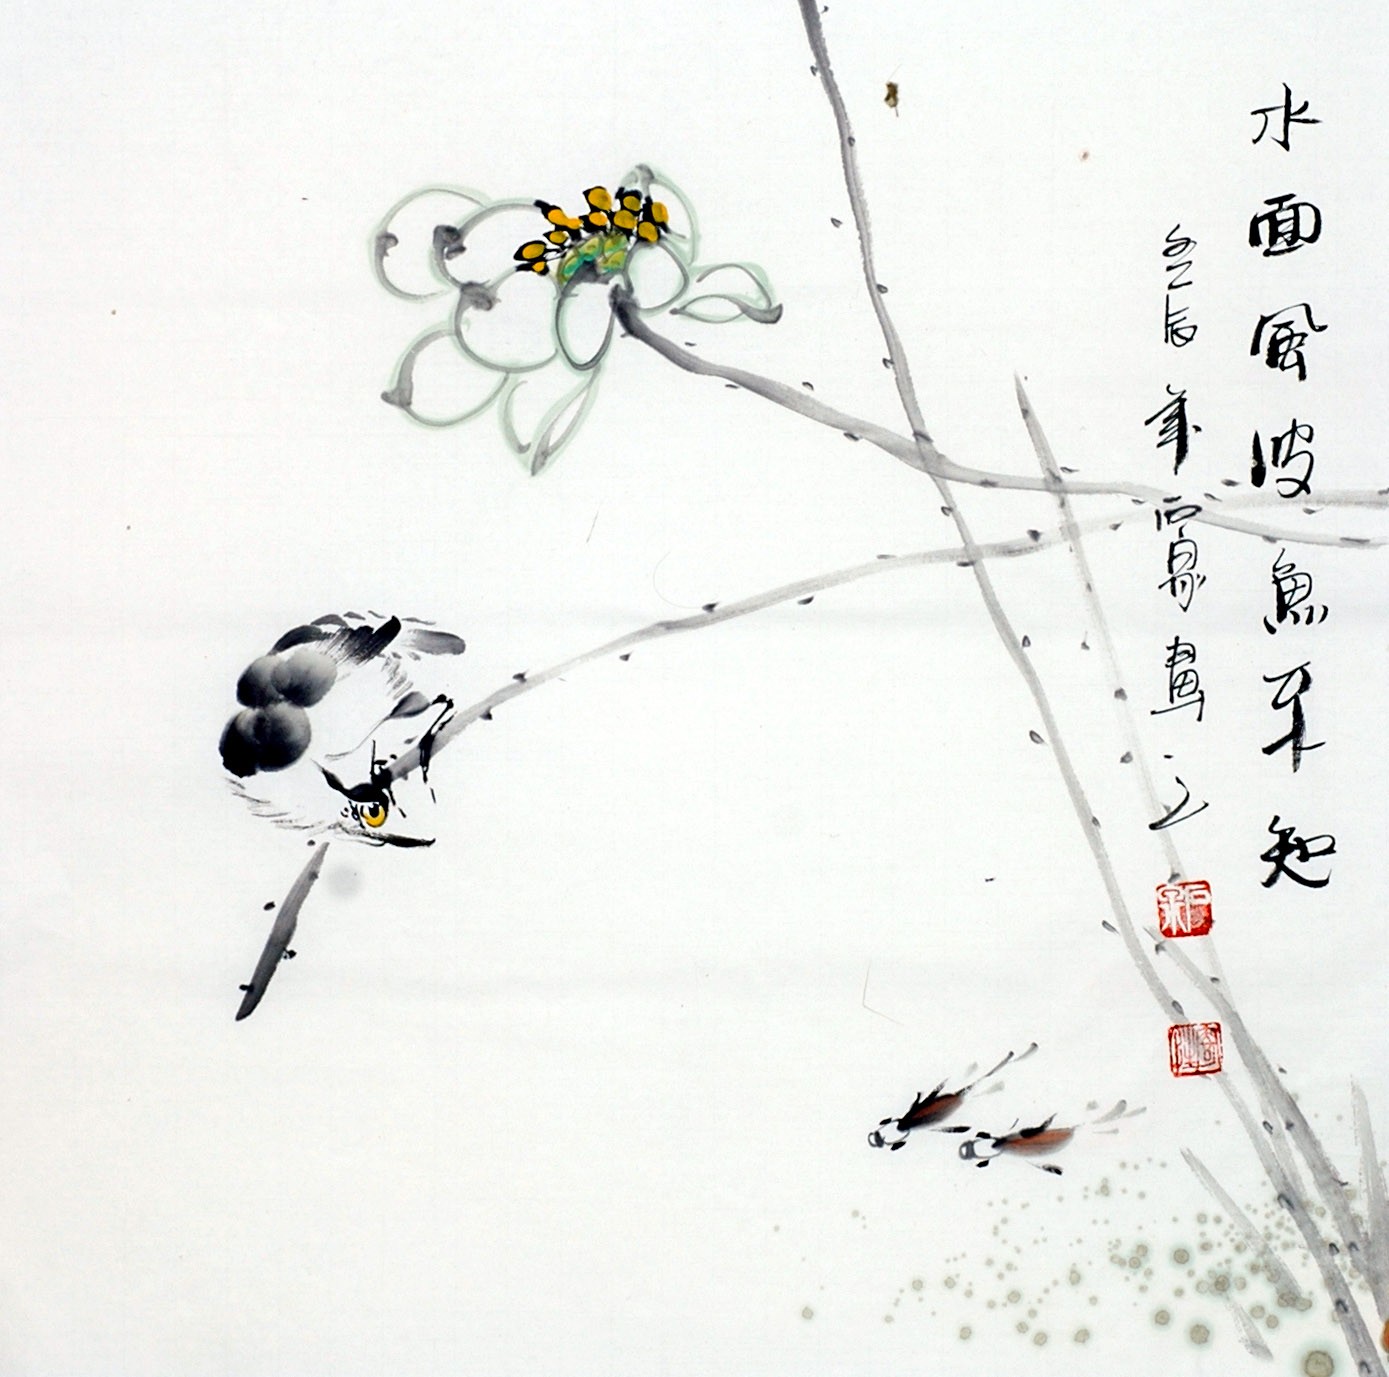 水面風波魚不知
壬辰年石泉畫之